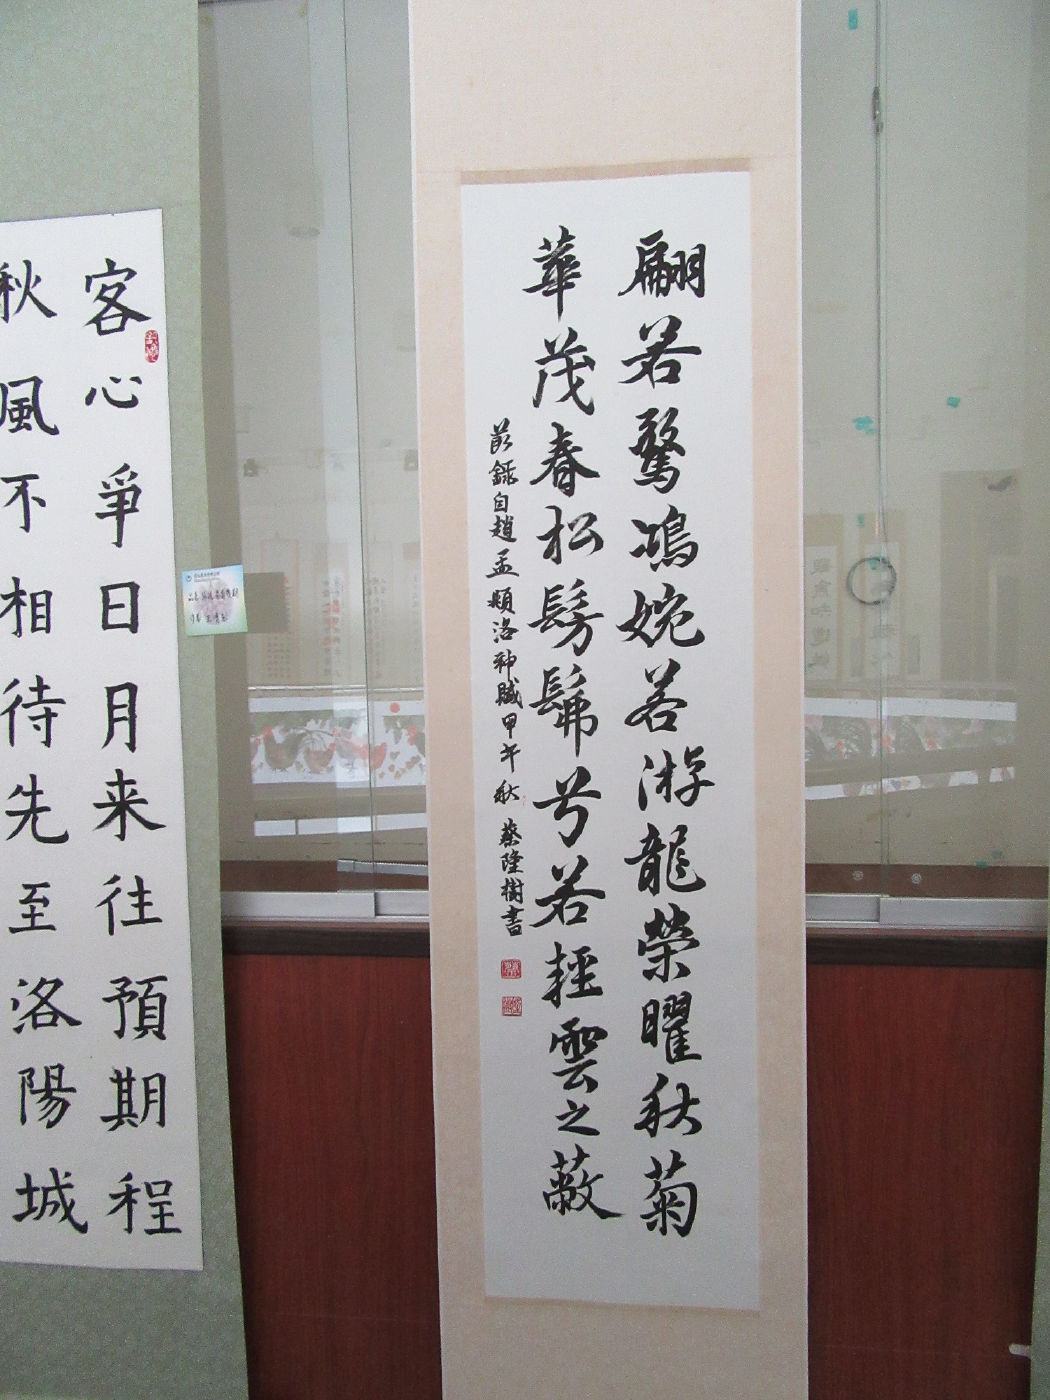 翩若驚鴻婉若游龍榮曜秋菊
華茂春松髣髴兮若輕雲之蔽
節錄自趙孟頫洛神賦甲午秋 蔡隆樹書
客心爭日月来往預期程
秋風不相待先至洛陽城